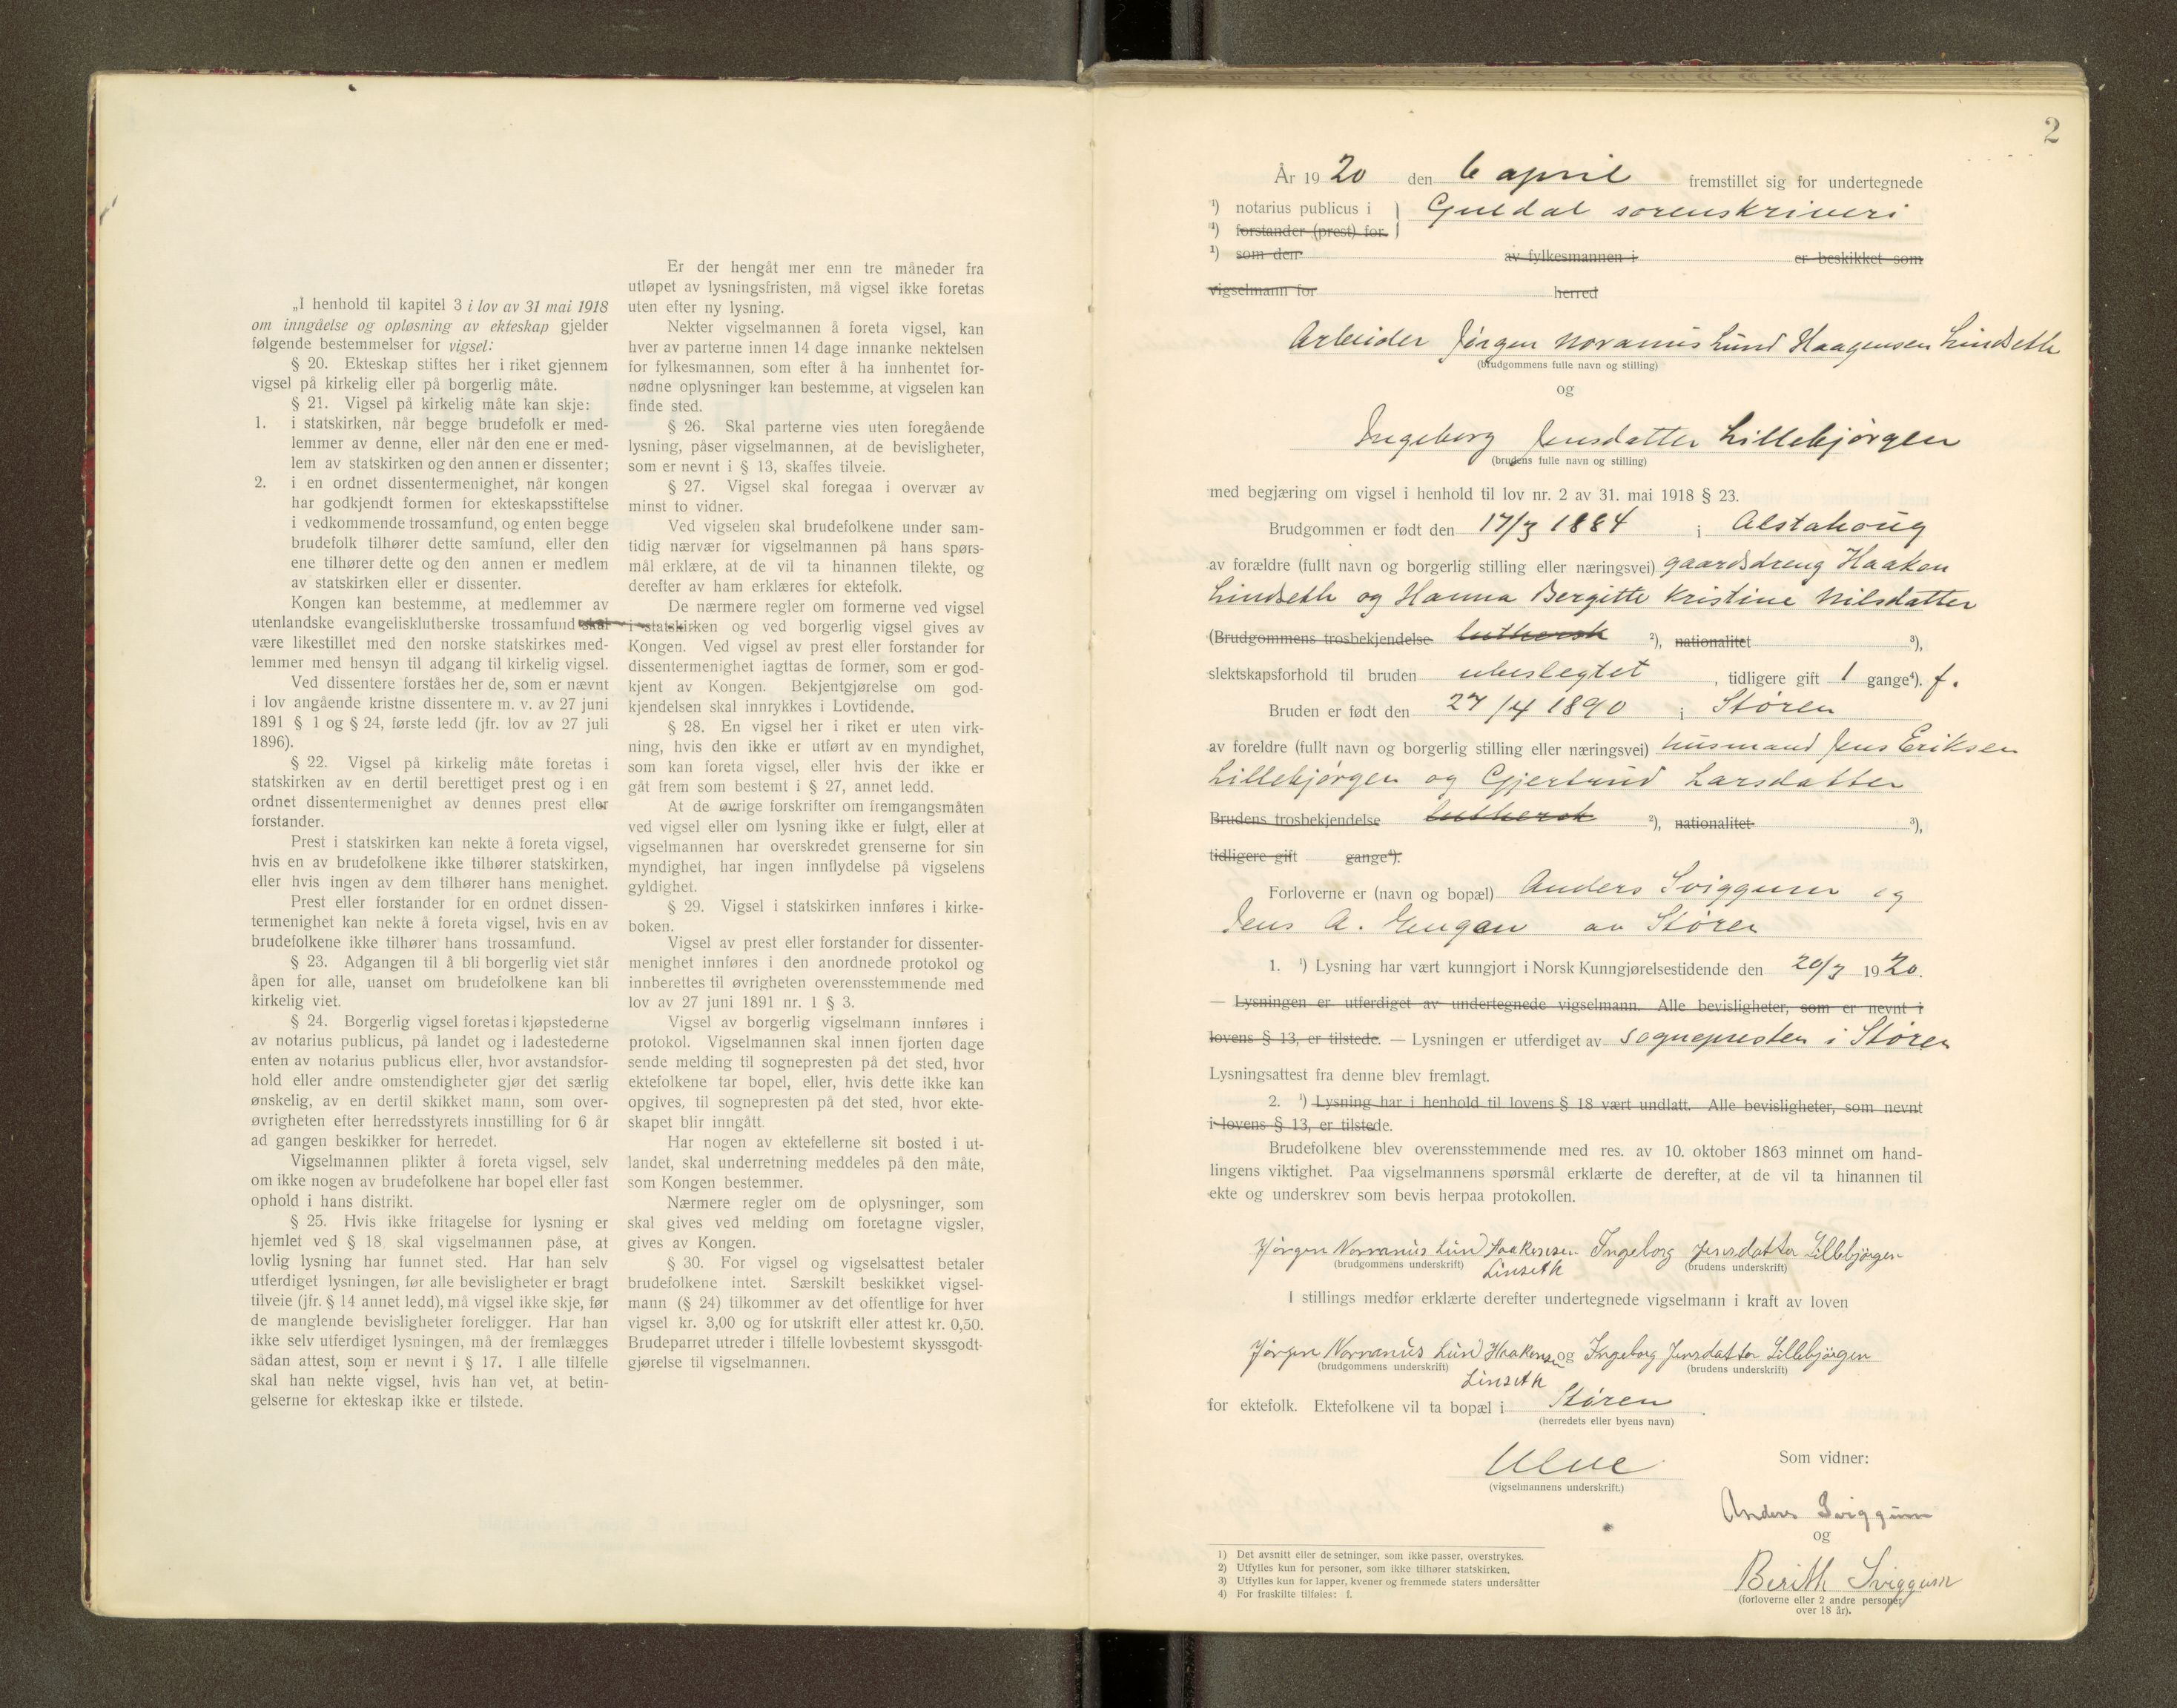 „I henhold til kapitel 3 i lov av 31 mai 1918
om inngåelse og opløsning av ekteskap gjelder
følgende bestemmelser for vigsel:
§ 20. Ekteskap stiftes her i riket gjennem
vigsel på kirkelig eller på borgerlig måte.
§ 21. Vigsel på kirkelig måte kan skje:
1. i statskirken, når begge brudefolk er med-
lemmer av denne, eller når den ene er med-
lem av statskirken og den annen er dissenter;
2. i en ordnet dissentermenighet, når kongen
har godkjendt formen for ekteskapsstiftelse
i vedkommende trossamfund, og enten begge
brudefolk tilhører dette samfund, eller den
ene tilhører dette og den annen er medlem
av statskirken eller er dissenter.
Kongen kan bestemme, at medlemmer av
utenlandske evangelisklutherske trossamfund skal
være likestillet med den norske statskirkes med-
lemmer med hensyn til adgang til kirkelig vigsel.
Ved dissentere forståes her de, som er nævnt
i lov angående kristne dissentere m. v. av 27 juni
1891 § 1 og § 24, første ledd (jfr. lov av 27 juli
1896).
§ 22. Vigsel på kirkelig måte foretas i
statskirken av en dertil berettiget prest og i en
ordnet dissentermenighet av dennes prest eller
forstander.
Prest i statskirken kan nekte å foreta vigsel,
hvis en av brudefolkene ikke tilhører statskirken,
eller hvis ingen av dem tilhører hans menighet.
Prest eller forstander for en ordnet dissen-
termenighet kan nekte å foreta vigsel, hvis en av
brudefolkene ikke tilhører hans trossamfund.
§ 23. Adgangen til å bli borgerlig viet står
åpen for alle, uanset om brudefolkene kan bli
kirkelig viet.
§ 24. Borgerlig vigsel foretas i kjøpstederne
av notarius publicus, på landet og i ladestederne
enten av notarius publicus eller, hvor avstandsfor-
hold eller andre omstendigheter gjør det særlig
ønskelig, av en dertil skikket mann, som over-
øvrigheten efter herredsstyrets innstilling for 6 år
ad gangen beskikker for herredet.
Vigselmannen plikter å foreta vigsel, selv
om ikke nogen av brudefolkene har bopel eller fast
ophold i hans distrikt.
§ 25. Hvis ikke fritagelse for lysning er
hjemlet ved § 18 skal vigselmannen påse, at
lovlig lysning har funnet sted. Har han selv
utferdiget lysningen, før alle bevisligheter er bragt
tilveie (jfr. § 14 annet ledd), må vigsel ikke skje, før
de manglende bevisligheter foreligger. Har han
ikke selv utferdiget lysningen, må der fremlægges
sådan attest, som er nevnt i § 17. I alle tilfelle
skal han nekte vigsel, hvis han vet, at betin-
gelserne for ekteskap ikke er tilstede.
Er der hengåt mer enn tre måneder fra
utløpet av lysningsfristen, må vigsel ikke foretas
uten efter ny lysning.
Nekter vigselmannen å foreta vigsel, kan
hver av parterne innen 14 dage innanke nektelsen
for fylkesmannen, som efter å ha innhentet for-
nødne oplysninger kan bestemme, at vigselen kan
finde sted.
§ 26. Skal parterne vies uten foregående
lysning, påser vigselmannen, at de bevisligheter,
som er nevnt i § 13, skaffes tilveie.
§ 27. Vigsel skal foregaa i overvær av
minst to vidner.
Ved vigselen skal brudefolkene under sam-
tidig nærvær for vigselmannen på hans spørs-
mål erklære, at de vil ta hinannen tilekte, og
derefter av ham erklæres for ektefolk.
De nærmere regler om formerne ved vigsel
i statskirken og ved borgerlig vigsel gives av
Kongen. Ved vigsel av prest eller forstander for
dissentermenighet iagttas de former, som er god-
kjent av Kongen. Bekjentgjørelse om god-
kjendelsen skal innrykkes i Lovtidende.
§ 28. En vigsel her i riket er uten virk-
ning, hvis den ikke er utført av en myndighet,
som kan foreta vigsel, eller hvis der ikke er
gåt frem som bestemt i § 27, annet ledd.
At de øvrige forskrifter om fremgangsmåten
ved vigsel eller om lysning ikke er fulgt, eller at
vigselmannen har overskredet grenserne for sin
myndighet, har ingen innflydelse på vigselens
gyldighet.
§ 29. Vigsel i statskirken innføres i kirke-
boken.
Vigsel av prest eller forstander for dissenter-
menighet innføres i den anordnede protokol og
innberettes til øvrigheten overensstemmende med
lov av 27 juni 1891 nr. 1 § 3.
Vigsel av borgerlig vigselmann innføres i
protokol. Vigselmannen skal innen fjorten dage
sende melding til sognepresten på det sted, hvor
ektefolkene tar bopel, eller, hvis dette ikke kan
opgives, til sognepresten på det sted, hvor ekte-
skapet blir inngått.
Har nogen av ektefellerne sit bosted i ut-
landet, skal underretning meddeles på den måte,
som Kongen bestemmer.
Nærmere regler om de oplysninger, som
skal gives ved melding om foretagne vigsler,
gives av Kongen.
§ 30. For vigsel og vigselsattest betaler
brudefolkene intet. Særskilt beskikket vigsel-
mann (§ 24) tilkommer av det offentlige for hver
vigsel kr. 3,00 og for utskrift eller attest kr. 0,50.
Brudeparret utreder i tilfelle lovbestemt skyssgodt-
gjørelse til vigselmannen.
2
År 1920 den 6 april fremstillet sig for undertegnede
¹) notarius publicus i } Guldal sorenskriveri
¹) forstander (prest) for
¹) som den av fylkesmannen i er beskikket som
vigselmann for herred
Arbeider Jørgen Noranus Lund Haagensen Lindseth
(brudgommens fulle navn og stilling)
og
Ingeborg Jensdatter Lillebjørgen
(brudens fulle navn og stilling)
med begjæring om vigsel i henhold til lov nr. 2 av 31. mai 1918 § 23.
Brudgommen er født den 17/3 1884 i Alstahoug
av forældre (fullt navn og borgerlig stilling eller næringsvei) gaardsdreng Haakon
Lindseth og Hanna Bergitte Kristine Nilsdatter
(Brudgommens trosbekjendelse luthersk ²), nationalitet ³),
slektskapsforhold til bruden ubeslegtet, tidligere gift 1 gange⁴). f.
Bruden er født den 27/4 1890 i Støren
av foreldre (fullt navn og borgerlig stilling eller næringsvei) husmand Jens Eriksen
Lillebjørgen og Gjertrud Larsdatter
Brudens trosbekjendelse luthersk ²), nationalitet ³),
tidligere gift gange⁴).
Forloverne er (navn og bopæl) Anders Sviggum og
Jens A. Engan av Støren
1. ¹) Lysning har vært kunngjort i Norsk Kunngjørelsestidende den 20/3 1920.
— Lysningen er utferdiget av undertegnede vigselmann. Alle bevisligheter, som er nevnt i
lovens § 13, er tilstede. — Lysningen er utferdiget av sognepresten i Støren
Lysningsattest fra denne blev fremlagt.
2. ¹) Lysning har i henhold til lovens § 18 vært undlatt. Alle bevisligheter, som nevnt
i lovens § 13, er tilstede.
Brudefolkene blev overensstemmende med res. av 10. oktober 1863 minnet om hand-
lingens viktighet. Paa vigselmannens spørsmål erklærte de derefter, at de vil ta hinannen til
ekte og underskrev som bevis herpaa protokollen.
Jörgen Norranus Lund Haakensen Ingeborg Jensdatter Lillebjörgen
(brudgommens underskrift) Linseth (brudens underskrift)
I stillings medfør erklærte derefter undertegnede vigselmann i kraft av loven
Jörgen Norranus Lund Haakensen og Ingeborg Jensdatter Lillebjörgen
(brudgommens underskrift) Linseth (brudens underskrift)
for ektefolk. Ektefolkene vil ta bopæl i Støren.
(herredets eller byens navn)
Ulve
(vigselmannens underskrift.)
Som vidner:
Anders Sviggum
og
Berith Sviggum
(forloverne eller 2 andre personer
over 18 år).
1) Det avsnitt eller de setninger, som ikke passer, overstrykes.
2) Utfylles kun for personer, som ikke tilhører statskirken.
3) Utfylles kun for lapper, kvener og fremmede staters undersåtter
4) For fraskilte tilføies: f.